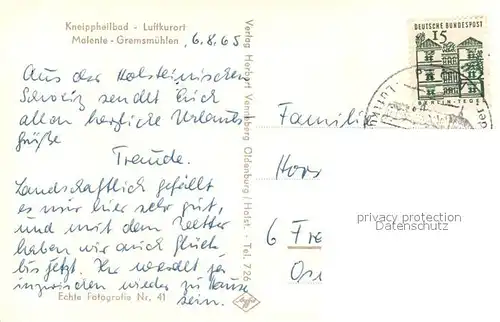 Kneippheilbad - Luftkurort
Malente - Gremsmühlen
6.8.65
Aus der Holsteinischen
Schweiz sendet Euch
allen herzliche Urlaubs-
grüße
Traude.
Landschaftlich gefällt
es mir hier sehr gut,
und mit dem Wetter
haben wir auch Glück
bis jetzt. Ihr werdet ja
inzwischen wieder zu Hause
sein.
Echte Fotografie Nr. 41
Verlag Herbert Vennberg Oldenburg/Holst. - Tel. 726
Agfa
DEUTSCHE BUNDESPOST
15
BERLIN-TEGEL
Familie
Hors
6 Fra
privacy protection
Datenschutz